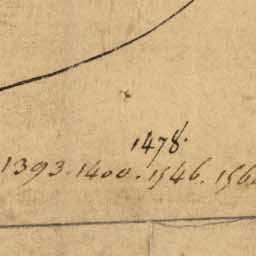 1478.
1393.1400.1546.156